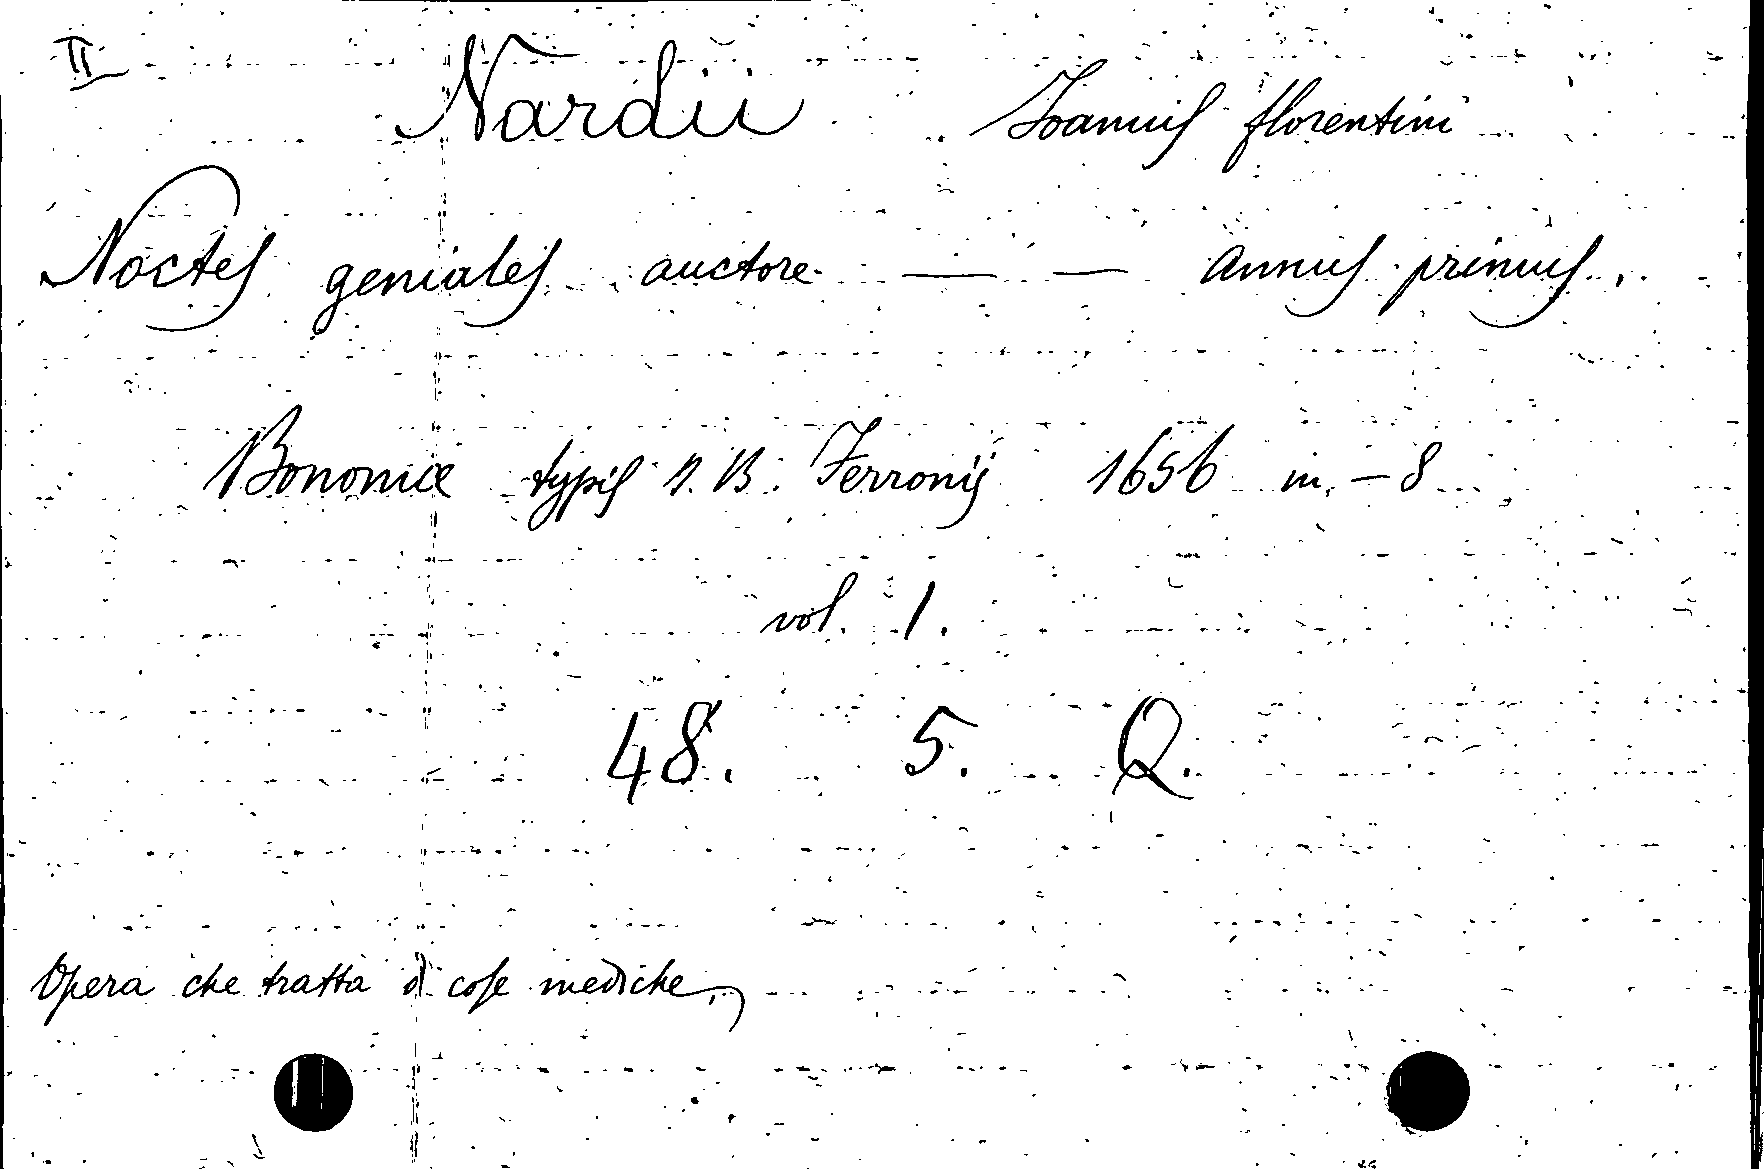 II
Nardii Joannis florentini
Noctes geniales auctore — — annus primus.
Bononiæ typis J. B. Ferronij 1656 in - 8
vol. 1.
48. 5. Q.
Opera che tratta di cose mediche,